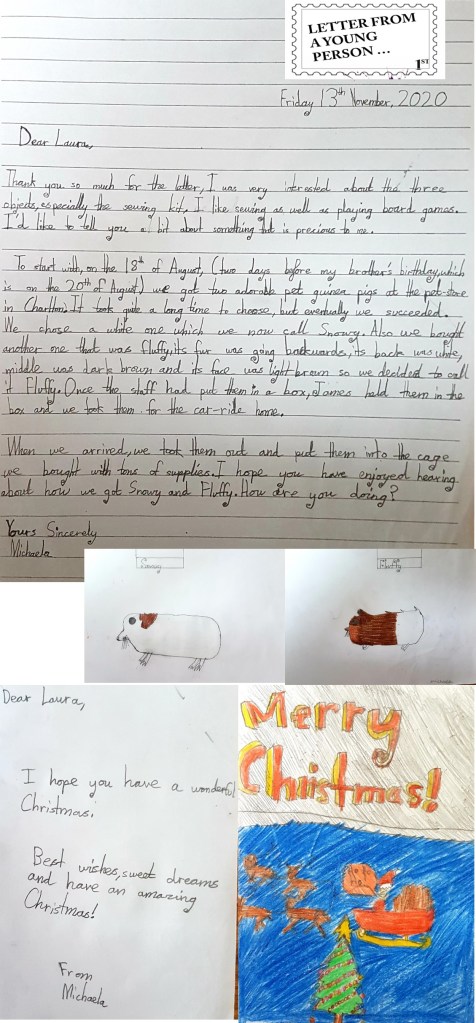 LETTER FROM
A YOUNG
PERSON...
1ST
Friday 13th November, 2020
Dear Laura,
Thank you so much for the letter, I was very interested about the three
objects, especially the sewing kit. I like sewing as well as playing board games.
I'd like to tell you a bit about something that is precious to me.
To start with, on the 18th of August, (two days before my brother's birthday, which
is on the 20th of August) we got two adorable pet guinea pigs at the pet-store
in Charlton. It took quite a long time to choose, but eventually we succeeded.
We chose a white one which we now call Snowy. Also we bought
another one that was fluffy, its fur was going backwards, its back was white,
middle was dark brown and its face was light brown so we decided to call
it Fluffy. Once the staff had put them in a box, James held them in the
box and we took them for the car-ride home.
When we arrived, we took them out and put them into the cage
we bought with tons of supplies. I hope you have enjoyed hearing
about how we got Snowy and Fluffy. How are you doing?
Yours Sincerely
Michaela
Snowy
Fluffy
Dear Laura,
I hope you have a wonderful
Christmas.
Best wishes, sweet dreams
and have an amazing
Christmas!
From
Michaela
Merry
Christmas!
Ho Ho
Ho!